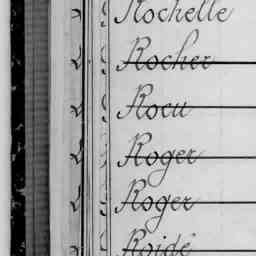 Rochelle
Rocher
Rocu
Roger
Roger
Roidé